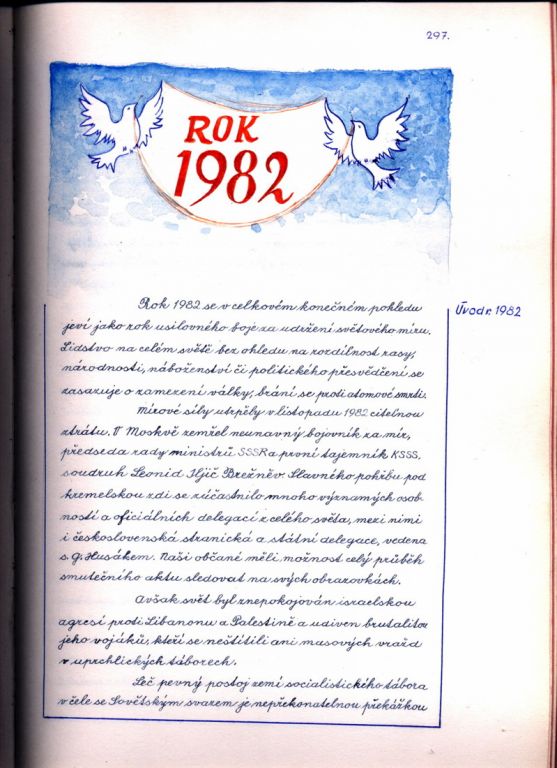 297.
ROK
1982
Rok 1982 se v celkovém konečném pohledu
Úvod r. 1982
jeví jako rok usilovného boje za udržení světového míru.
Lidstvo na celém světě bez ohledu na rozdílnost rasy,
národnosti, náboženství či politického přesvědčení se
zasazuje o zamezení války, brání se proti atomové smrti.
Mírové síly utrpěly v listopadu 1982 citelnou
ztrátu. V Moskvě zemřel neunavný bojovník za mír,
předseda rady ministrů SSSR a první tajemník KSSS,
soudruh Leonid Iljič Brežněv. Slavného pohřbu pod
kremelskou zdi se zúčastnilo mnoho významých osob-
ností a oficiálních delegací z celého světa, mezi nimi
i československá stranická a státní delegace, vedena
s. G. Husákem. Naši občané měli možnost celý průběh
smutečního aktu sledovat na svých obrazovkách.
Avšak svět byl znepokojován israelskou
agresí proti Libanonu a Palestině a udiven brutalitou
jeho vojáků, kteří se neštítili ani masových vražd
v uprchlických táborech.
Leč pevný postoj zemí socialistického tábora
v čele se Sovětským svazem je nepřekonatelnou překážkou